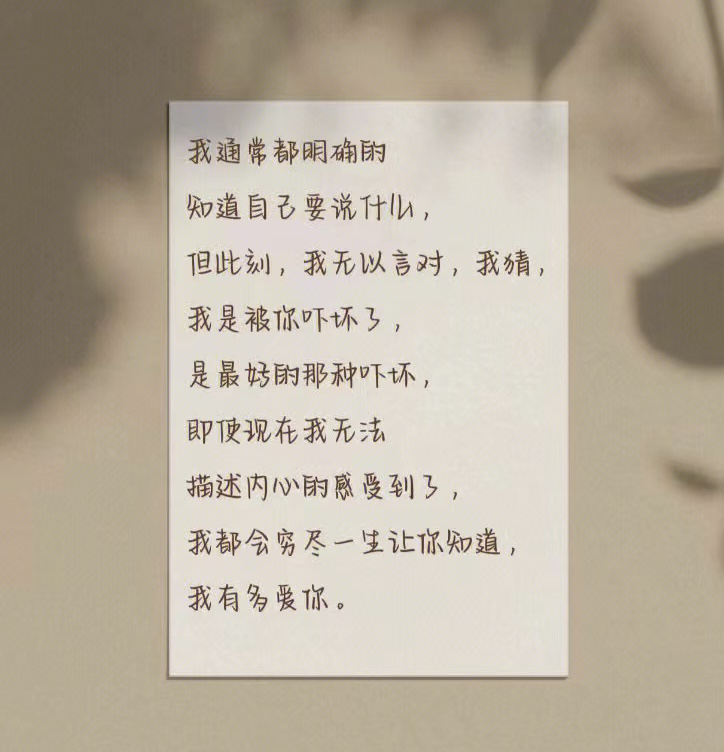 我通常都明确的
知道自己要说什么，
但此刻，我无以言对，我猜，
我是被你吓坏了，
是最好的那种吓坏，
即使现在我无法
描述内心的感受到了，
我都会穷尽一生让你知道，
我有多爱你。